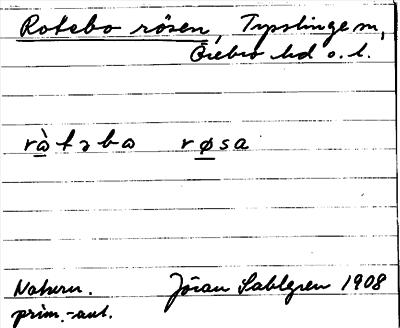 Rotebo rösen, Tysslinge sn,
Örebro hd o. l.
rà̱təba rø̱sa
Naturn. Jöran Sahlgren 1908
prim.-ant.